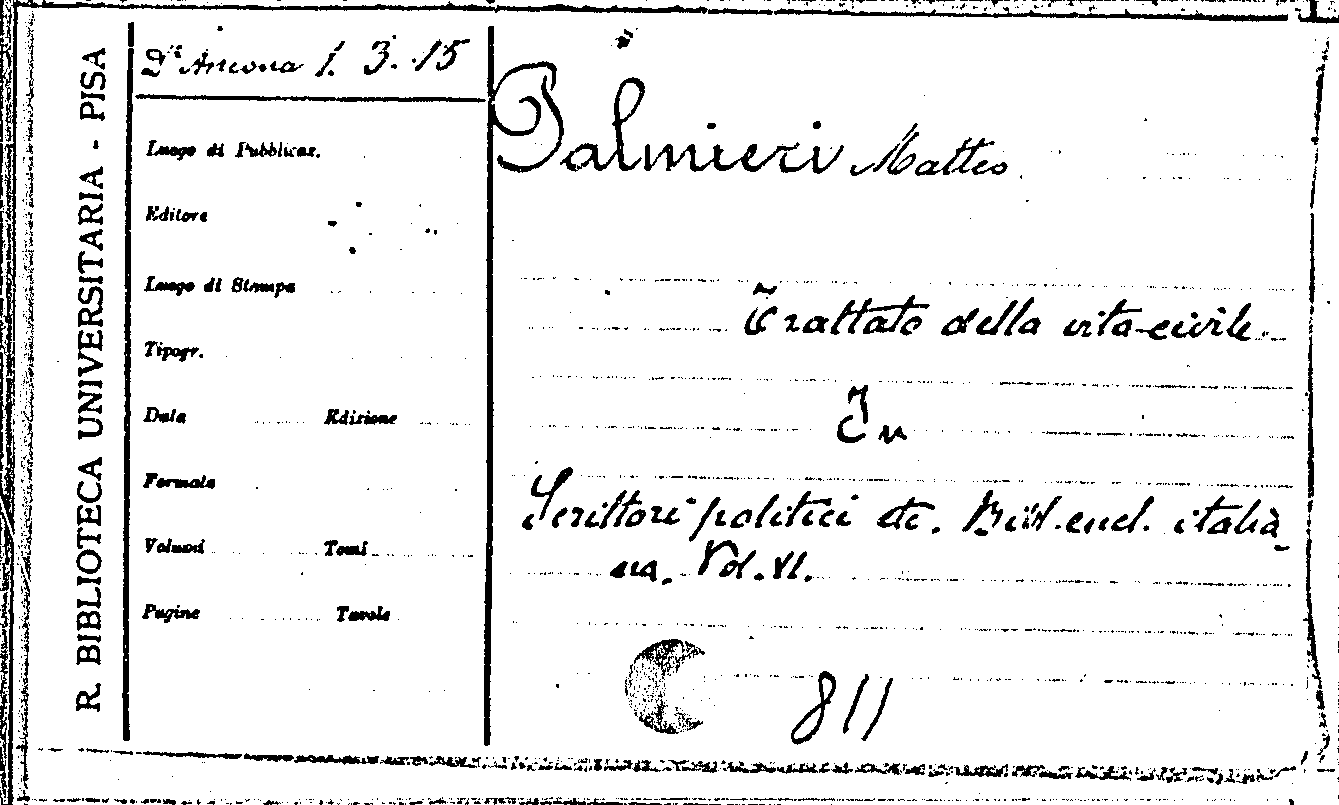 R. BIBLIOTECA UNIVERSITARIA - PISA
D'Ancona 1. 3. 15
Luogo di Pubblicaz.
Editore
Luogo di Stampa
Tipogr.
Data Edizione
Formato
Volumi Tomi
Pagine Tavole
Palmieri Matteo
Trattato della vita civile
In
Scrittori politici etc. Bibl. encl. italia-
na. Vol. VI.
811